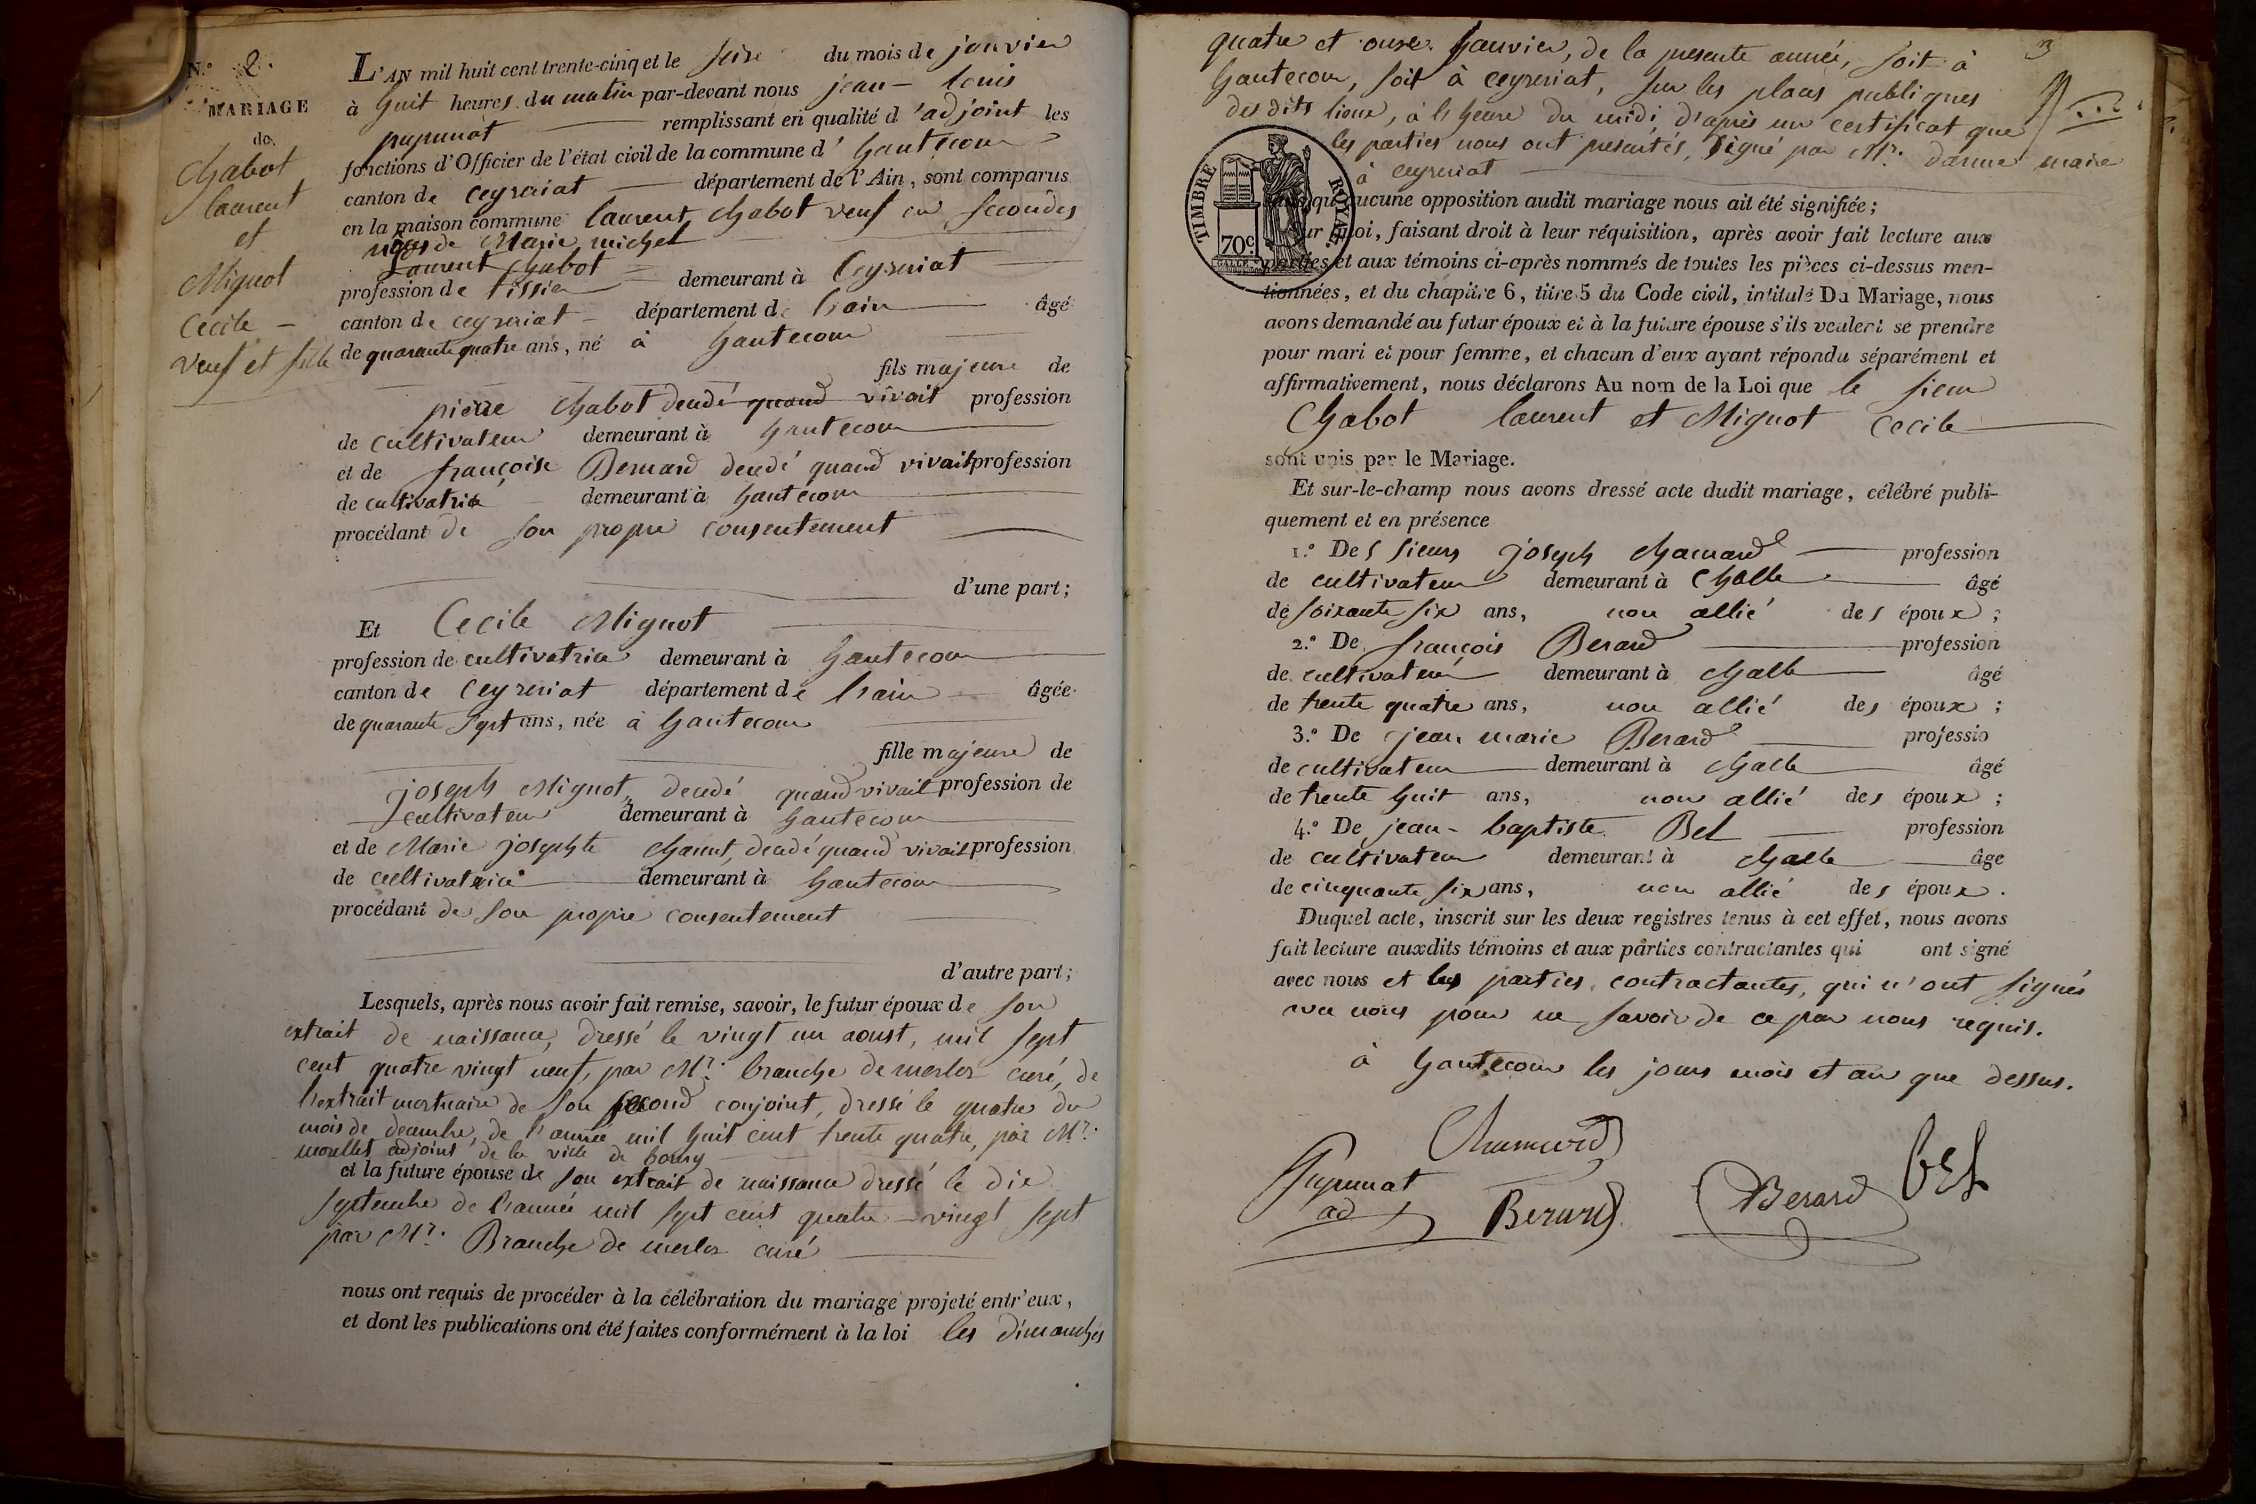 N.° 2.
MARIAGE
de
Chabot
laurent
et
Mignot
Cecile –
veuf et fille
L'AN mil huit cent trente-cinq et le seise du mois de janvier
à huit heures du matin par-devant nous jean – louis
papunat remplissant en qualité d'adjoint les
fonctions d'Officier de l'état civil de la commune d'hautecour
canton de ceyseriat département de l'Ain, sont comparus
en la maison commune laurent chabot veuf en secondes
noces de Marie michel
Laurent chabot
profession de tissier demeurant à Ceyseriat
canton de ceyseriat – département de lain âgé
de quarante quatre ans, né à hautecour
fils majeure de
pierre chabot decédé quand vivait profession
de cultivateur demeurant à hautecour
et de françoise Bernard decedé quand vivait profession
de cultivatrice demeurant à hautecour
procédant de son propre consentement
d'une part;
Et Cecile Mignot
profession de cultivatrice demeurant à hautecour
canton de Ceyseriat département de lain âgée
de quarante sept ans, née à hautecour
fille majeure de
joseph Mignot, decedé quand vivait profession de
cultivateur demeurant à hautecour
et de Marie josephte chanut, decedé quand vivait profession
de cultivatrice demeurant à hautecour
procédant de son propre consentement
d'autre part;
Lesquels, après nous avoir fait remise, savoir, le futur époux de son
extrait de naissance, dressé le vingt un aoust, mil sept
cent quatre vingt neuf, par Mr. branche de merloz curé, de
l'extrait mortuaire de son second conjoint, dressé le quatre du
mois de decembre, de l'année mil huit cent trente quatre, par Mr.
morellet adjoint de la ville de bourg
et la future épouse de son extrait de naissance dressé le dix
septembre de l'année mil sept cent quatre – vingt sept
par Mr. Branche de merloz curé
nous ont requis de procéder à la célébration du mariage projeté entr'eux,
et dont les publications ont été faites conformément à la loi les dimanches
3
quatre et onze janvier, de la presente année, soit à
hautecour, soit à ceyseriat, sur les places publiques
des dits lieux, à l'heure du midi, d'après un certificat que
les parties nous ont presentés, signé par Mr. darme maire
à ceyseriat
TIMBRE ROYAL.
70c
sans qu'aucune opposition audit mariage nous ait été signifiée;
Sur quoi, faisant droit à leur réquisition, après avoir fait lecture aux
parties et aux témoins ci-après nommés de toutes les pièces ci-dessus men-
tionnées, et du chapitre 6, titre 5 du Code civil, intitulé Du Mariage, nous
avons demandé au futur époux et à la future épouse s'ils veulent se prendre
pour mari et pour femme, et chacun d'eux ayant répondu séparément et
affirmativement, nous déclarons Au nom de la Loi que le sieur
Chabot laurent et Mignot Cecile
sont unis par le Mariage.
Et sur-le-champ nous avons dressé acte dudit mariage, célébré publi-
quement et en présence
1.° Des sieurs joseph chamard profession
de cultivateur demeurant à Challe âgé
de soixante six ans, non allié des époux;
2.° De françois Berard profession
de cultivateur demeurant à challe âgé
de trente quatre ans, non allié des époux;
3.° De jean marie Berard professio
de cultivateur demeurant à challe âgé
de trente huit ans, non allié des époux;
4.° De jean – baptiste Bel profession
de cultivateur demeurant à challe âge
de cinquante six ans, non allié des époux.
Duquel acte, inscrit sur les deux registres tenus à cet effet, nous avons
fait lecture auxdits témoins et aux parties contractantes qui ont signé
avec nous et les parties contractantes, qui n'ont signés
avec nous pour ne savoir de ce par nous requis.
à hautecour les jours mois et an que dessus.
Chamard
Papunat
ad
Berard
Berard
bel